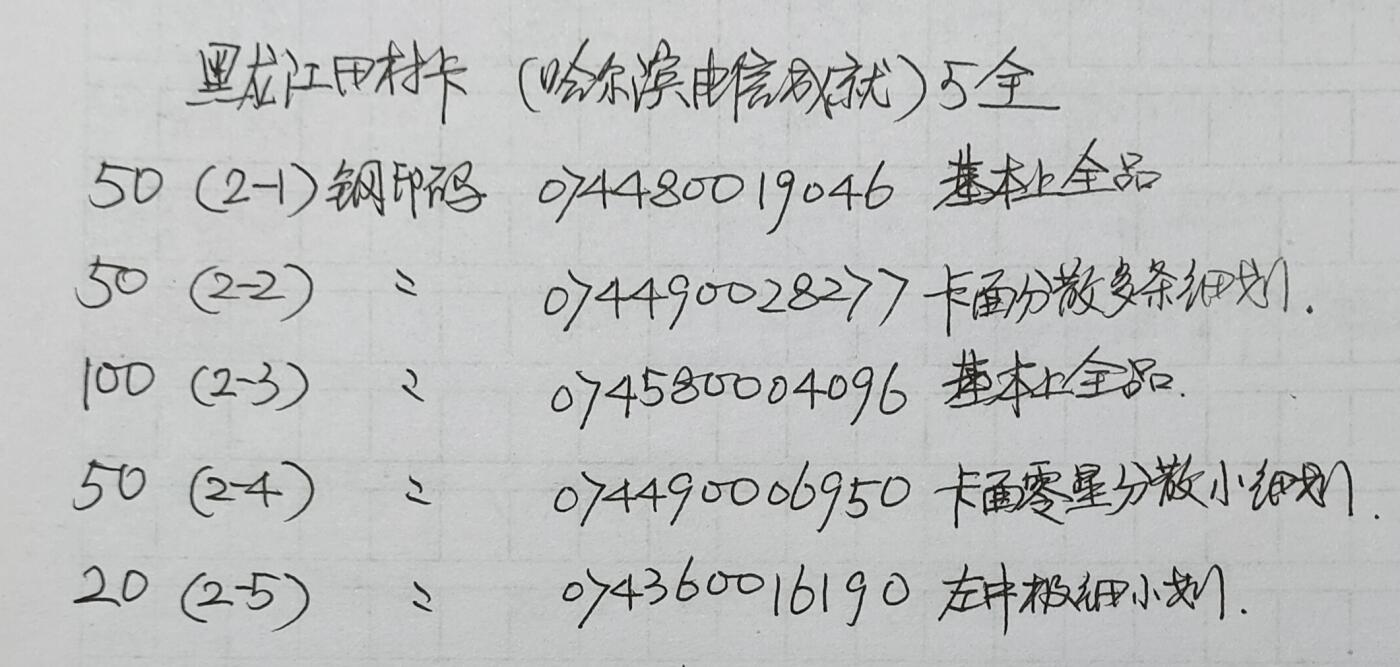 黑龙江田村卡 (哈尔滨电信成就) 5全
50 (2-1) 钢印码 074480019046 基本上全品
50 (2-2) 〃 074490028277 卡面分散多条细划.
100 (2-3) 〃 074580004096 基本上全品.
50 (2-4) 〃 074490006950 卡面零星分散小细划.
20 (2-5) 〃 074360016190 左中极细小划.